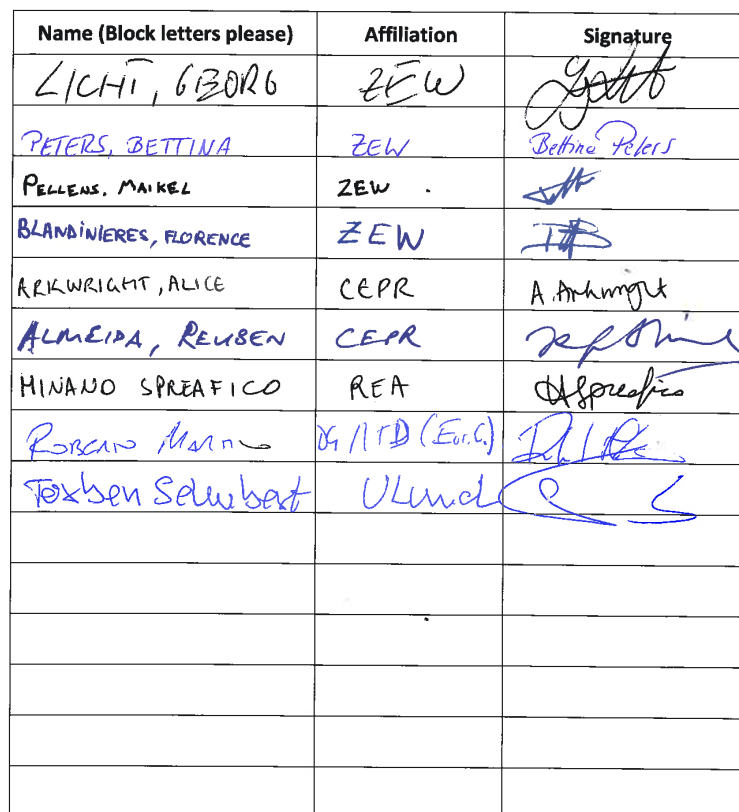 Name (Block letters please) Affiliation Signature
LICHT, GEORG ZEW
PETERS, BETTINA ZEW Bettina Peters
PELLENS, MAIKEL ZEW
BLANDINIERES, FLORENCE ZEW
ARKWRIGHT, ALICE CEPR A. Arkwright
ALMEIDA, REUBEN CEPR
MINANO SPREAFICO REA HSpreafico
(Eur.C.)
Torben Schubert ULund